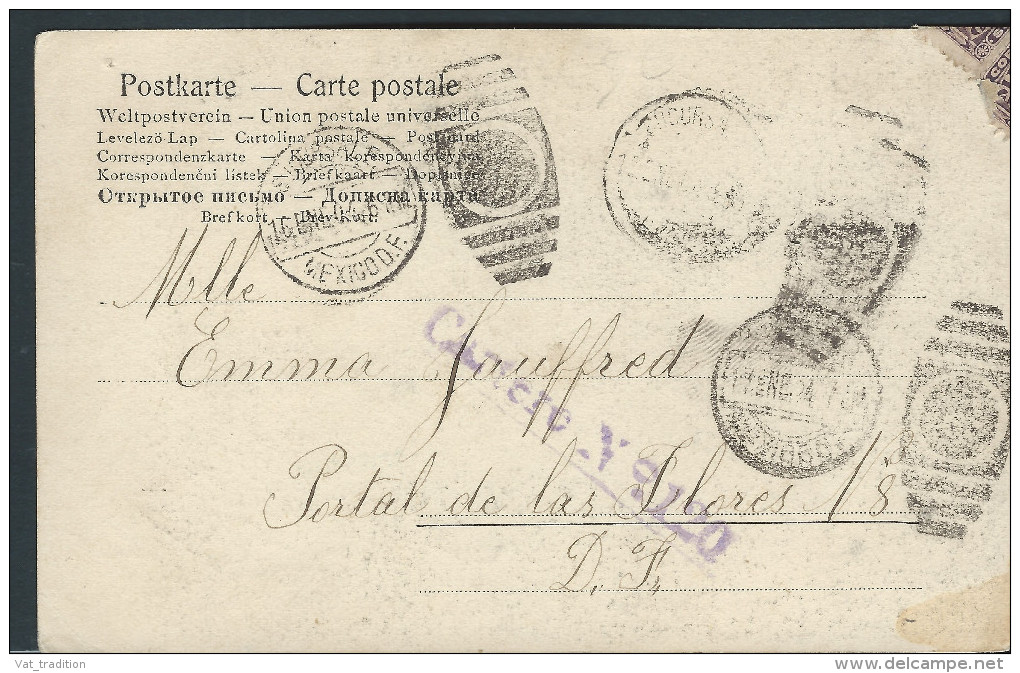 Postkarte — Carte postale
Weltpostverein — Union postale universelle
Levelező-Lap — Cartolina postale — Postcard
Correspondenzkarte — Karta korespondencyjna
Korespondenční lístek — Briefkaart — Dopisnica
Открытое письмо — Дописна карта
Brefkort — Brev-Kort.
MEXICO D.F.
Mlle
Emma Jauffred
Cartero
Portal de las Flores N 8
D. F.
Vat_tradition
www.delcampe.net